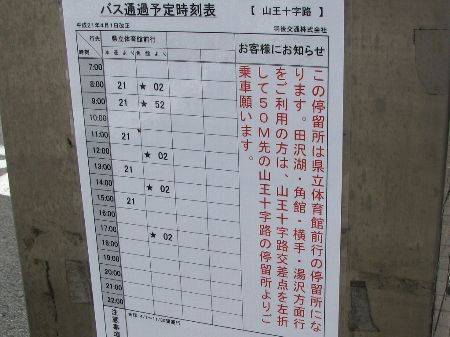 バス通過予定時刻表
【 山王十字路 】
平成21年4月1日改正
羽後交通株式会社
行先
県立体育館前行
時間
お客様にお知らせ
7:00
8:00 21 ★ 02
9:00 21 ★ 52
10:00
11:00 21
12:00 ★ 02
13:00 21
14:00 ★ 02
15:00 21
16:00
17:00 ★ 02
18:00
19:00
20:00
21:00
22:00
注意事項
この停留所は県立体育館前行の停留所にな
ります。田沢湖・角館・横手・湯沢方面行
をご利用の方は、山王十字路交差点を左折
して50M先の山王十字路の停留所よりご
乗車願います。